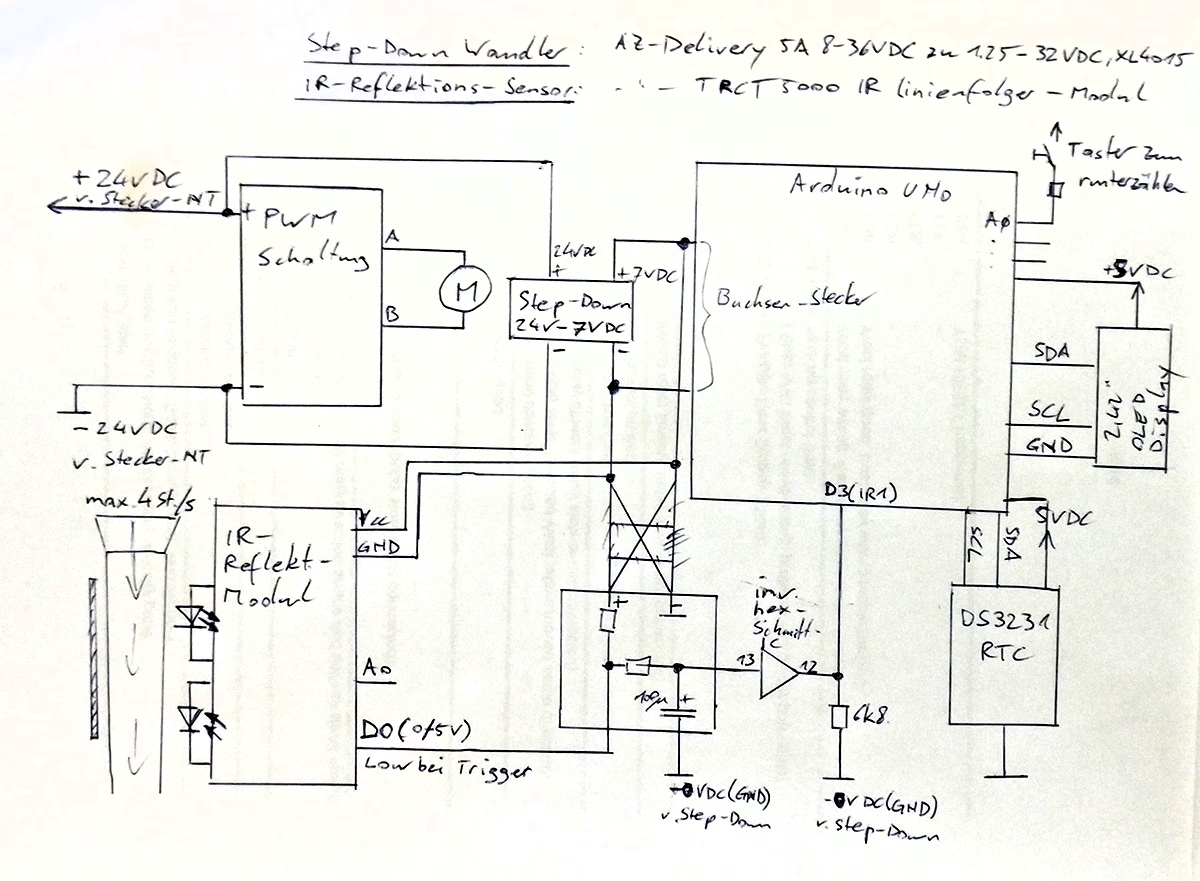 Step-Down Wandler: AZ-Delivery 5A 8-36VDC zu 1.25-32VDC, XL4015
IR-Reflektions-Sensor: - " - TRCT 5000 IR linienfolger - Modul
+24VDC
v. Stecker-NT
+ PWM
Schaltung
A
B
M
-
-24VDC
v. Stecker-NT
24VDC
+
+7VDC
Step-Down
24V-7VDC
-
-
Buchsen-Stecker
Arduino UNO
Taster zum
runterzählen
A0
+5VDC
SDA
SCL
GND
2,42"
OLED
Display
D3(IR1)
SCL
SDA
5VDC
DS3231
RTC
max. 4 St./s
IR-
Reflekt-
Modul
Vcc
GND
A0
D0(0/5V)
Low bei Trigger
+
-
100µ
+
inv.
hex-
Schmitt-
13
12
6k8
0VDC(GND)
v. Step-Down
-0VDC(GND)
v. Step-Down